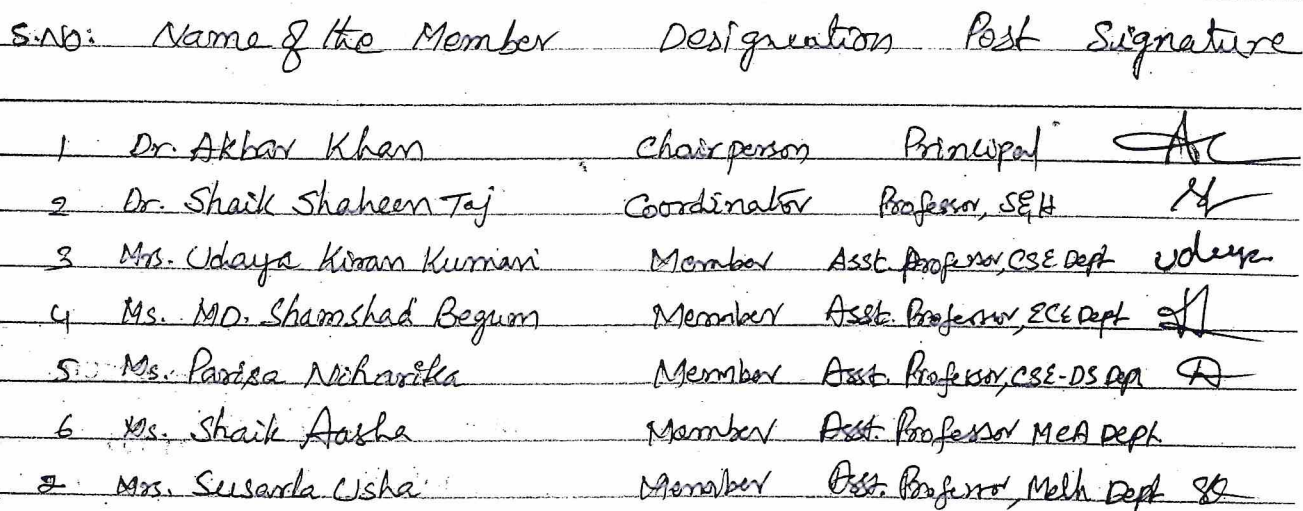 S.No: Name of the Member Designation Post Signature
1 Dr. Akbar Khan Chairperson Principal
2 Dr. Shaik Shaheen Taj Coordinator Professor, S&H
3 Mrs. Udaya Kiran Kumari Member Asst. Professor, CSE Dept Udaya
4 Ms. MD. Shamshad Begum Member Asst. Professor, ECE Dept
5 Ms. Parisa Niharika Member Asst. Professor, CSE-DS Dept
6 Ms. Shaik Aasha Member Asst. Professor MCA Dept
7 Mrs. Susarla Usha Member Asst. Professor, Mech Dept